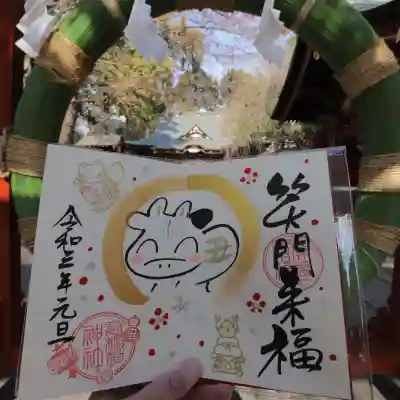 笑門来福
丑
令和三年元旦
神社